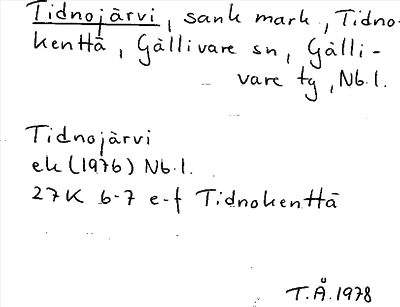 Tidnojärvi, sank mark, Tidno-
kenttä, Gällivare sn, Gälli-
vare tg, Nb.l.
Tidnojärvi
ek (1976) Nb.l.
27K 6-7 e-f Tidnokenttä
T.Å.1978